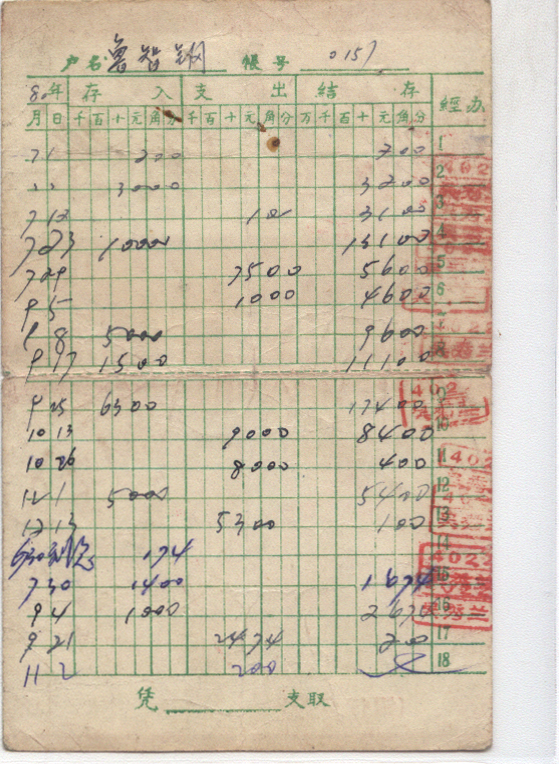 户名 鲁智钢 帳号 0157
80年 存入 支出 结存 經办
月 日 千 百 十 元 角 分 千 百 十 元 角 分 万 千 百 十 元 角 分
200 200 1
3000 3200 2
7 12 10 3100 3
7 23 10000 13100 4
7 29 7500 5600 5
9 5 1000 4600 6
9 8 5000 9600
9 17 1500 11100
9 25 6300 17400
10 13 9000 8400 10
10 26 8000 400 11
12 1 5000 5400 12
12 13 5300 100 13
630利息 174 14
7 30 1400 1674 15
9 4 1000 2674 16
9 21 2474 200 17
11 2 200 18
凭 支取
402
4022